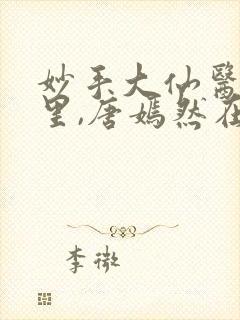 妙手大仙醫
里,唐嫣然在
李微